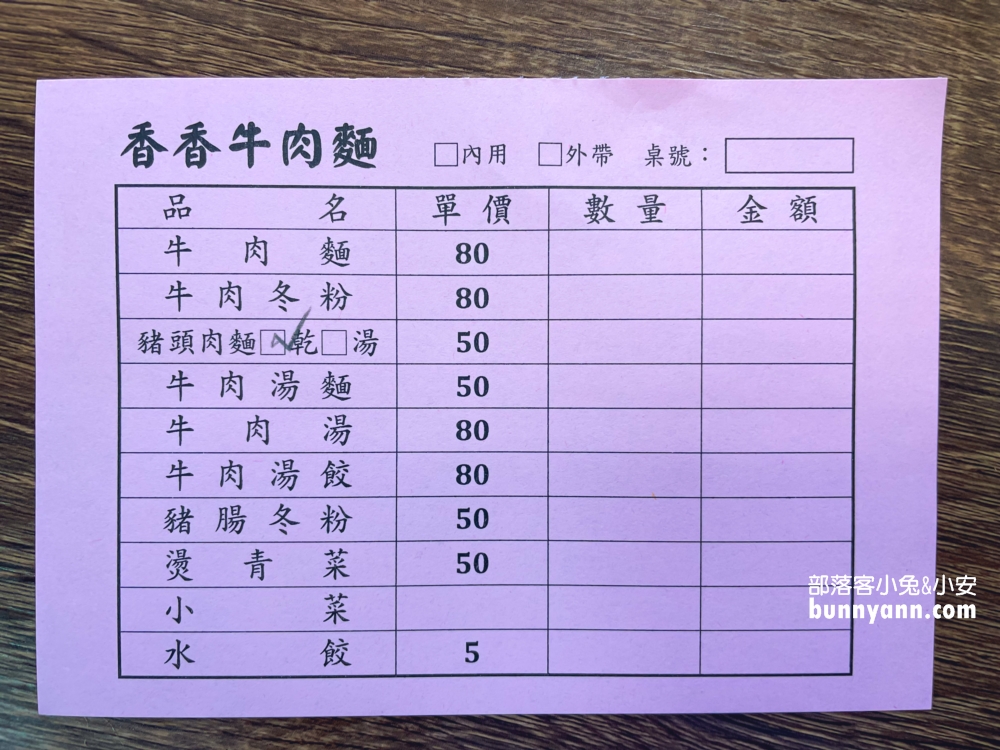 香香牛肉麵 □內用 □外帶 桌號：
品名 單價 數量 金額
牛肉麵 80
牛肉冬粉 80
豬頭肉麵□乾□湯 50
牛肉湯麵 50
牛肉湯 80
牛肉湯餃 80
豬腸冬粉 50
燙青菜 50
小菜
水餃 5
部落客小兔&小安
bunnyann.com